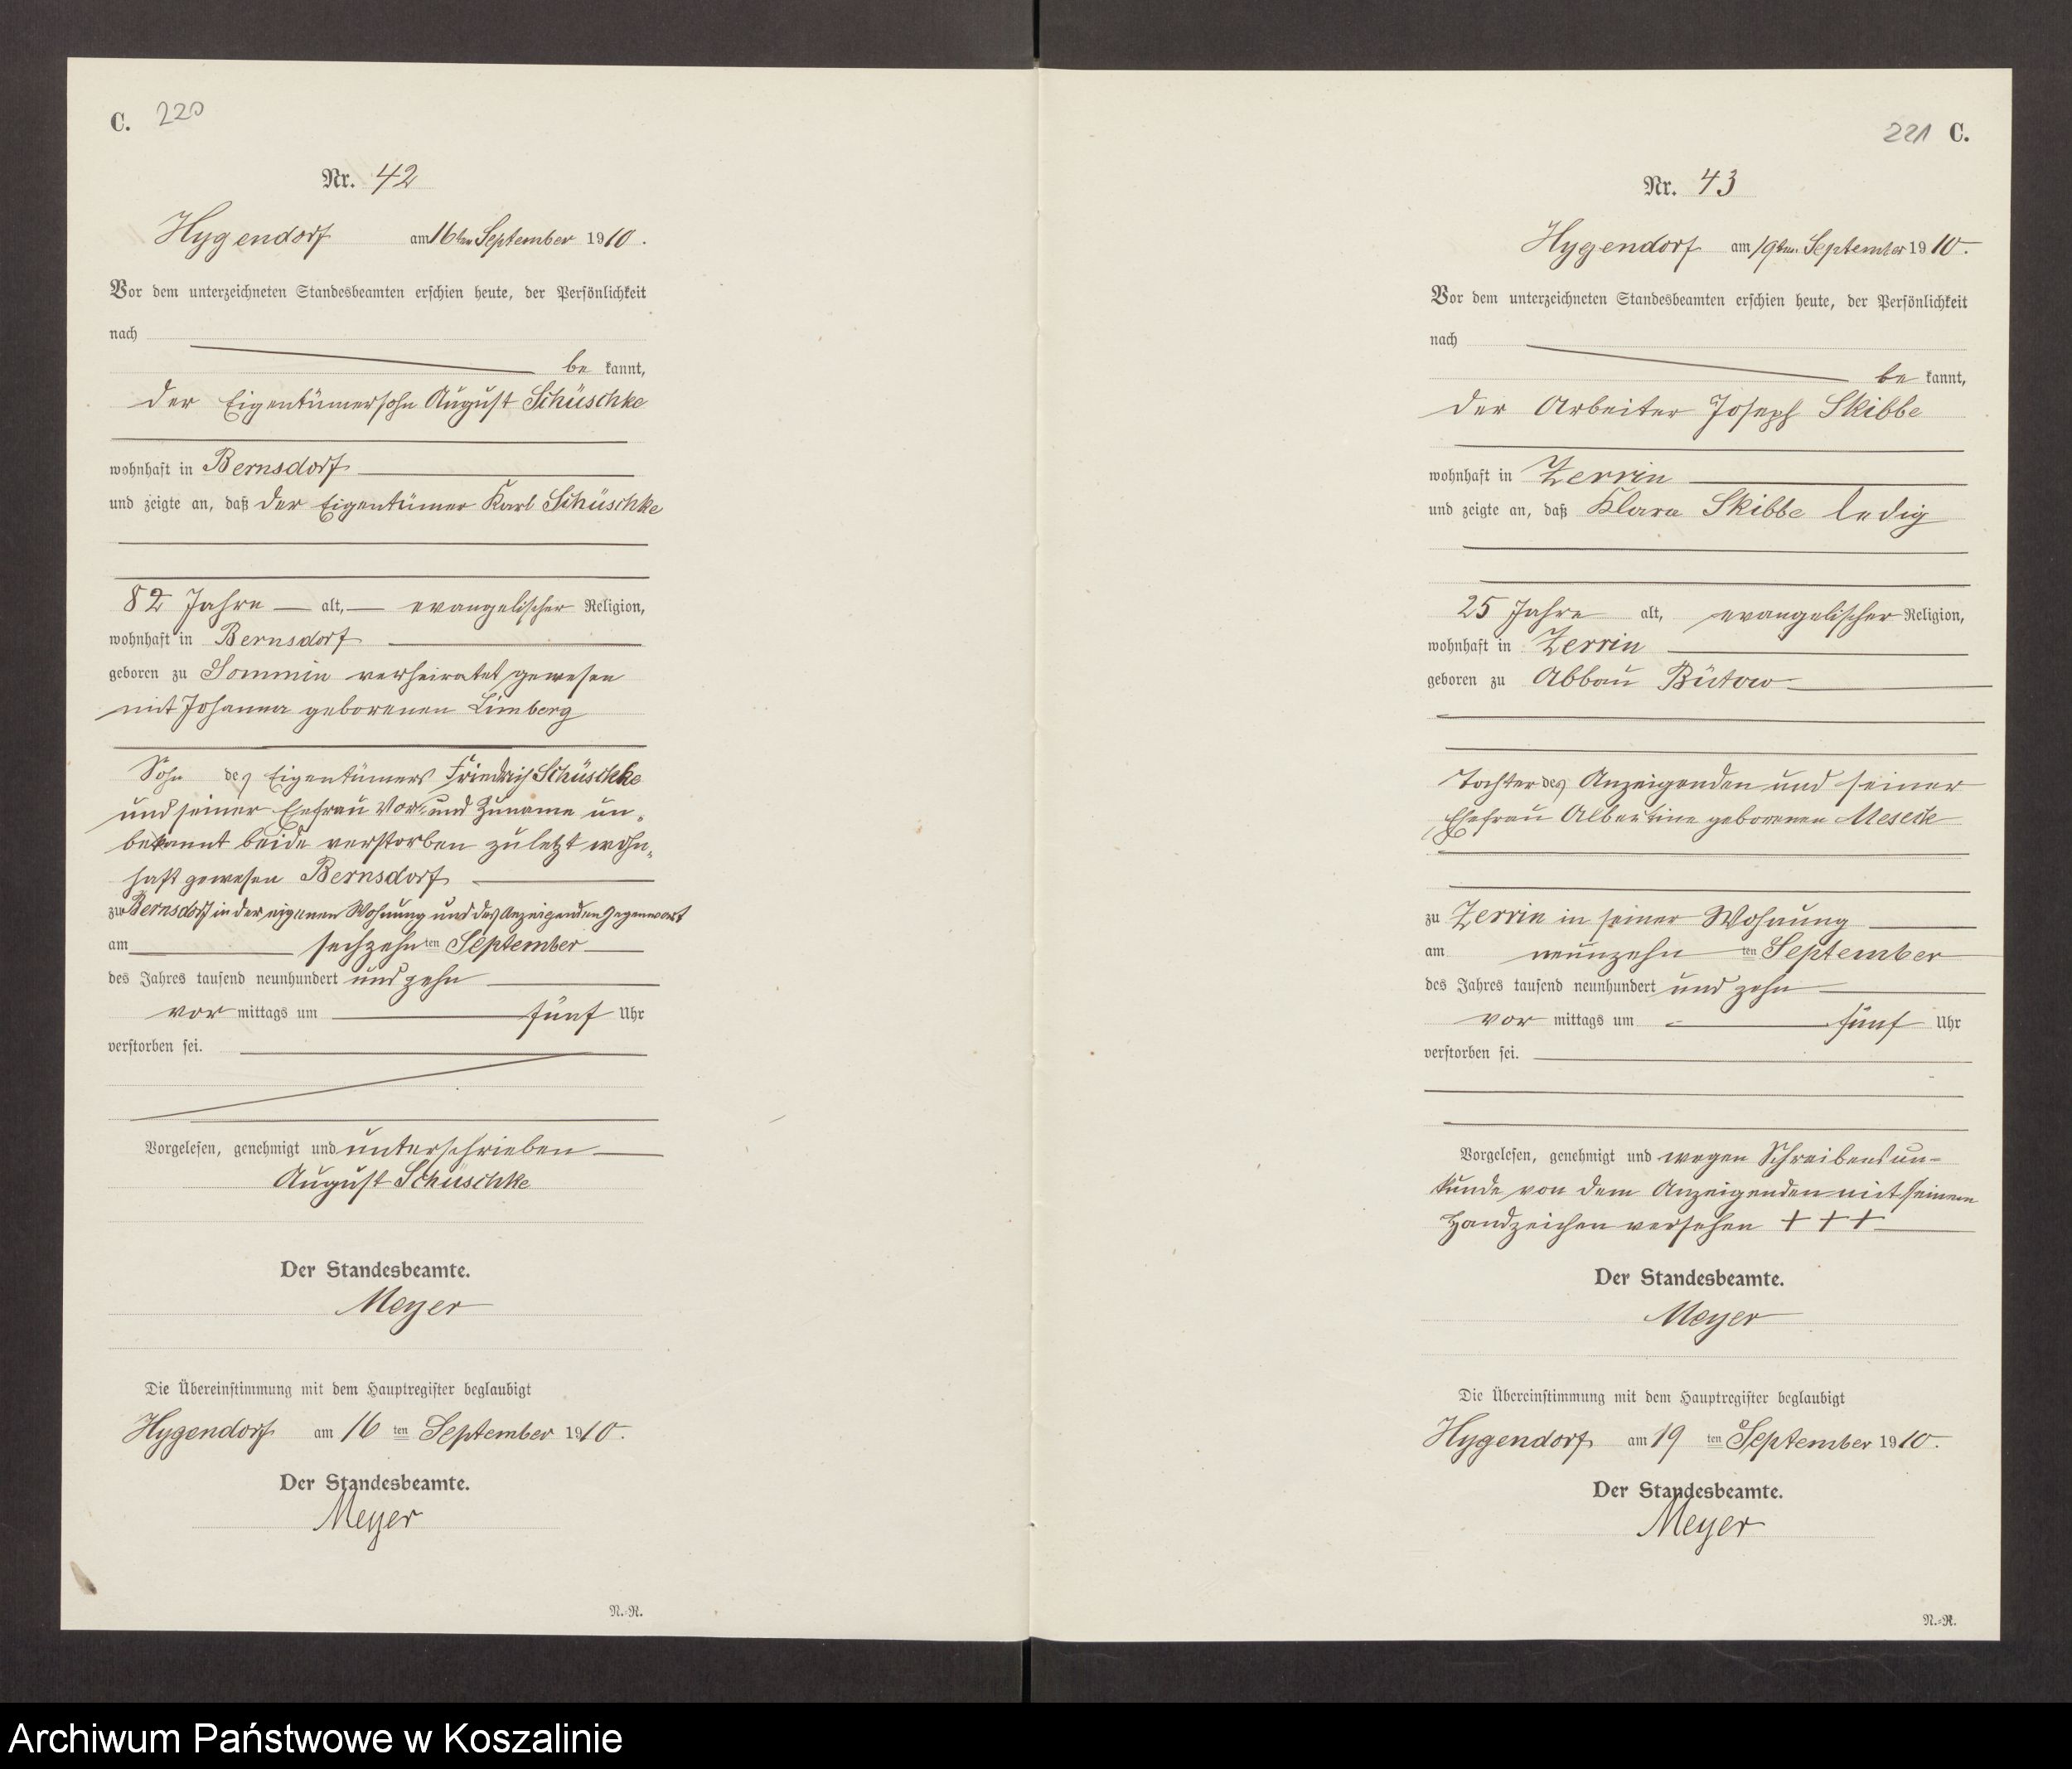 C. 220
Nr. 42
Hygendorf am 16ten September 1910.
Vor dem unterzeichneten Standesbeamten erschien heute, der Persönlichkeit
nach
be kannt,
der Eigentümersohn August Schüschke
wohnhaft in Bernsdorf
und zeigte an, daß der Eigentümer Karl Schüschke
82 Jahre alt, evangelischer Religion,
wohnhaft in Bernsdorf
geboren zu Sommin verheiratet gewesen
mit Johanna geborenen Limberg
Sohn des Eigentümers Friedrich Schüschke
und seiner Ehefrau Vor- und Zuname un-
bekannt beide verstorben zuletzt wohn-
haft gewesen Bernsdorf
zu Bernsdorf in der eigenen Wohnung und des Anzeigenden Gegenwart
am sechzehn ten September
des Jahres tausend neunhundert und zehn
vor mittags um fünf Uhr
verstorben sei.
Vorgelesen, genehmigt und unterschrieben
August Schüschke
Der Standesbeamte.
Meyer
Die Übereinstimmung mit dem Hauptregister beglaubigt
Hygendorf am 16 ten September 1910.
Der Standesbeamte.
Meyer
N.-R.
221 C.
Nr. 43
Hygendorf am 19ten September 1910.
Vor dem unterzeichneten Standesbeamten erschien heute, der Persönlichkeit
nach
be kannt,
der Arbeiter Joseph Skibbe
wohnhaft in Zerrin
und zeigte an, daß Klara Skibbe ledig
25 Jahre alt, evangelischer Religion,
wohnhaft in Zerrin
geboren zu Abbau Bütow
Tochter des Anzeigenden und seiner
Ehefrau Albertine geborenen Meseck
zu Zerrin in seiner Wohnung
am neunzehn ten September
des Jahres tausend neunhundert und zehn
vor mittags um fünf Uhr
verstorben sei.
Vorgelesen, genehmigt und wegen Schreibensun-
kunde von dem Anzeigenden mit seinem
Handzeichen versehen + + +
Der Standesbeamte.
Meyer
Die Übereinstimmung mit dem Hauptregister beglaubigt
Hygendorf am 19 ten September 1910.
Der Standesbeamte.
Meyer
N.-R.
Archiwum Państwowe w Koszalinie